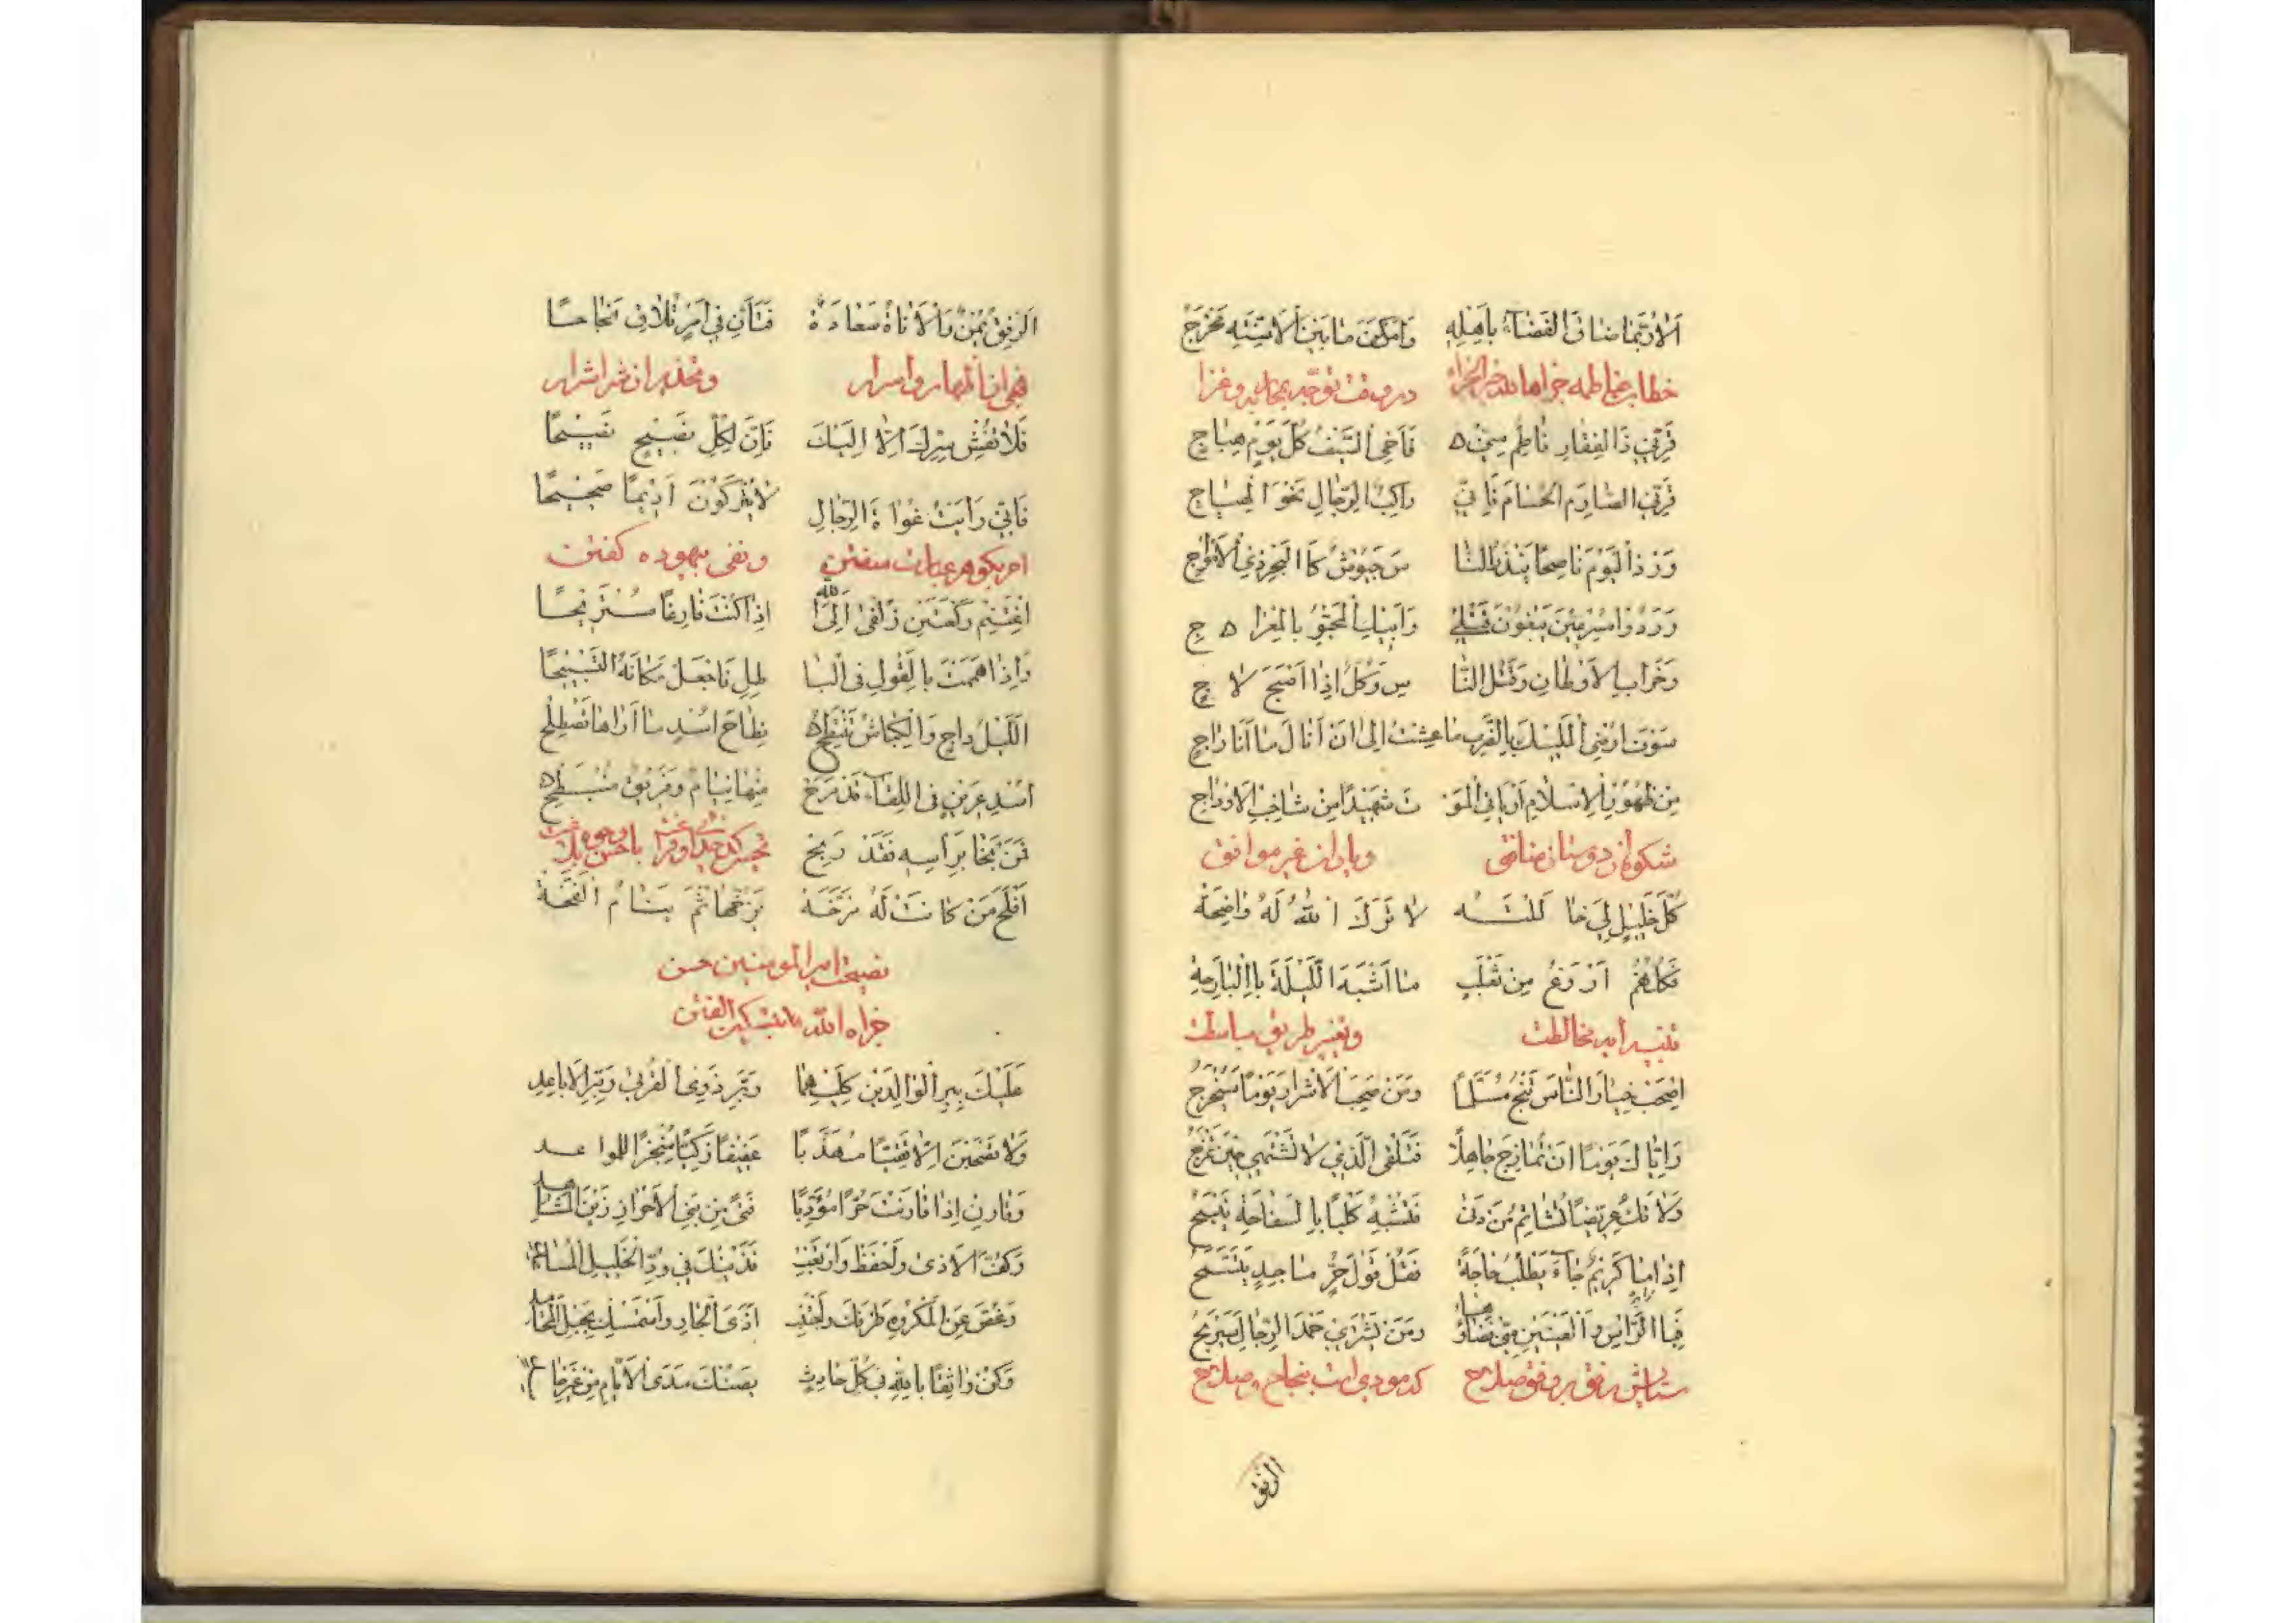 اَلا رُبَّمَا ضَاقَ الفَضَاءُ بِاَهْلِهِ وَاَمْكَنَ مَا بَيْنَ الْاَسِنَّةِ مَخْرَجٌ
خطاب بفاطمه جزاها الله خير الجزاء در وقت توجه بمجاهده و غزا
قَرِّبِي ذَا الفِقَارِ فَاطِمُ مِنِّي فَاَخِي السَّيْفُ كُلَّ يَوْمِ هِيَاجٍ
قَرِّبِي الصَّارِمَ الحُسَامَ فَاِنِّي رَاكِبٌ الرِّجَالِ نَحْوَ الهِيَاجِ
وَرَدَ الْيَوْمَ نَاصِحًا يُنْذِرُ النَّا سَ جُيُوشٌ كَالْبَحْرِ ذِي الْاَمْوَاجِ
وَرَدُوا مُسْرِعِينَ يَبْغُونَ قَتْلِي وَاَبِيكَ الْمَحْبُوِّ بِالْمِعْرَاجِ
وَخَرَابَ الْاَوْطَانِ وَقَتْلَ النَّا سِ وَكُلٌّ اِذَا اَصْبَحَ لَاجٍ
سَوْفَ اُرْضِي الْمَلِيكَ بِالضَّرْبِ مَا عِشْتُ اِلٰى اَنْ اَنَالَ مَا اَنَا رَاجٍ
مِنْ ظُهُورِ الْاِسْلَامِ اَوْ يَأْتِيَ الْمَوْ تُ شَهِيدًا مِنْ شَاخِبِ الْاَوْدَاجِ
شكوه از دوستان منافق و ياران غير موافق
كُلُّ خَلِيلٍ لِي خَالَلْتُهُ لَا تَرَكَ اللهُ لَهُ وَاضِحَةً
فَكُلُّهُمْ اَرْوَغُ مِنْ ثَعْلَبٍ مَا اَشْبَهَ اللَّيْلَةَ بِالْبَارِحَةِ
تنبيه امر مخالطت و تعيين طريق مباسطت
اِصْحَبْ خِيَارَ النَّاسِ تَنْجُ مُسَلَّمًا وَمَنْ صَحِبَ الْاَشْرَارَ يَوْمًا سَيُجْرَحُ
وَاِيَّاكَ يَوْمًا اَنْ تُمَازِحَ جَاهِلًا فَتَلْقَى الَّذِي لَا تَشْتَهِي حِينَ تَمْزَحُ
وَلَا تَكُ عِرِّيضًا تُشَاتِمُ مَنْ دَنٰى فَتُشْبِهُ كَلْبًا بِالسَّفَاهَةِ يَنْبَحُ
اِذَا مَا كَرِيمٌ جَاءَ يَطْلُبُ حَاجَةً فَقُلْ قَوْلَ حُرٍّ مَاجِدٍ يَتَسَمَّحُ
فَبِالرَّاْسِ وَالْعَيْنَيْنِ مِنِّي قَضَاؤُهَا وَمَنْ يَشْتَرِي حَمْدَ الرِّجَالِ سَيَرْبَحُ
ستايش رفق بر وفق صلاح كه مودى است بنجاح و صلاح
الرفق
اَلرِّفْقُ يُمْنٌ وَالْاَنَاةُ سَعَادَةٌ فَتَأَنَّ فِي اَمْرٍ تُلَاقِ نَجَاحًا
نهى از اظهار اسرار و تحذير از شر اشرار
فَلَا تُفْشِ سِرَّكَ اِلَّا اِلَيْكَ فَاِنَّ لِكُلِّ نَصِيحٍ نَصِيحًا
فَاِنِّي رَاَيْتُ غُوَاةَ الرِّجَالِ لَا يَتْرُكُونَ اَدِيمًا صَحِيحًا
امر بگوهر عبادت سفتن و نفى بيهوده گفتن
اِغْتَنِمْ رَكْعَتَيْنِ زُلْفٰى اِلَى اللهِ اِذَا كُنْتَ فَارِغًا مُسْتَرِيحًا
وَاِذَا هَمَمْتَ بِالْقَوْلِ فِي الْبَا طِلِ فَاجْعَلْ مَكَانَهُ التَّسْبِيحَا
اَللَّيْلُ دَاجٍ وَالْكِبَاشُ تَنْتَطِحُ نِطَاحَ اُسْدٍ مَا اَرَاهَا تَصْطَلِحُ
اُسْدُ عَرِينٍ فِي اللِّقَاءِ قَدْ مَرَحَ مِنْهَا نِيَامٌ وَفَرِيقٌ مُنْبَطِحٌ
فَمَنْ نَجَا بِرَاْسِهِ فَقَدْ رَبِحَ
اَفْلَحَ مَنْ كَانَتْ لَهُ مَزَخَّهْ يَزُخُّهَا ثُمَّ يَنَامُ الْفَخَّهْ
نصيحت امير المومنين حسن
جزاه الله بتسكين الفتن
عَلَيْكَ بِبِرِّ الْوَالِدَيْنِ كِلَيْهِمَا وَبِرِّ ذَوِي الْقُرْبٰى وَبِرِّ الْاَبَاعِدِ
وَلَا تَصْحَبَنَّ اِلَّا تَقِيًّا مُهَذَّبًا عَفِيفًا زَكِيًّا مُنْجِزًا لِلْمَوَاعِدِ
وَقَارِنْ اِذَا قَارَنْتَ حُرًّا مُؤَدَّبًا فَتًى مِنْ بَنِي الْاَحْرَارِ زَيْنَ الْمَشَاهِدِ
وَكُفَّ الْاَذٰى وَاحْفَظْ وَارْتَقِبْ فَدَيْتُكَ فِي وُدِّ الْخَلِيلِ الْمُسَاعِدِ
وَغُضَّ عَنِ الْمَكْرُوهِ طَرْفَكَ وَاجْتَنِبْ اَذَى الْجَارِ وَاسْتَمْسِكْ بِحَبْلِ الْمَحَامِدِ
وَكُنْ وَاثِقًا بِاللهِ فِي كُلِّ حَادِثٍ يَصُنْكَ مَدَى الْاَيَّامِ مِنْ